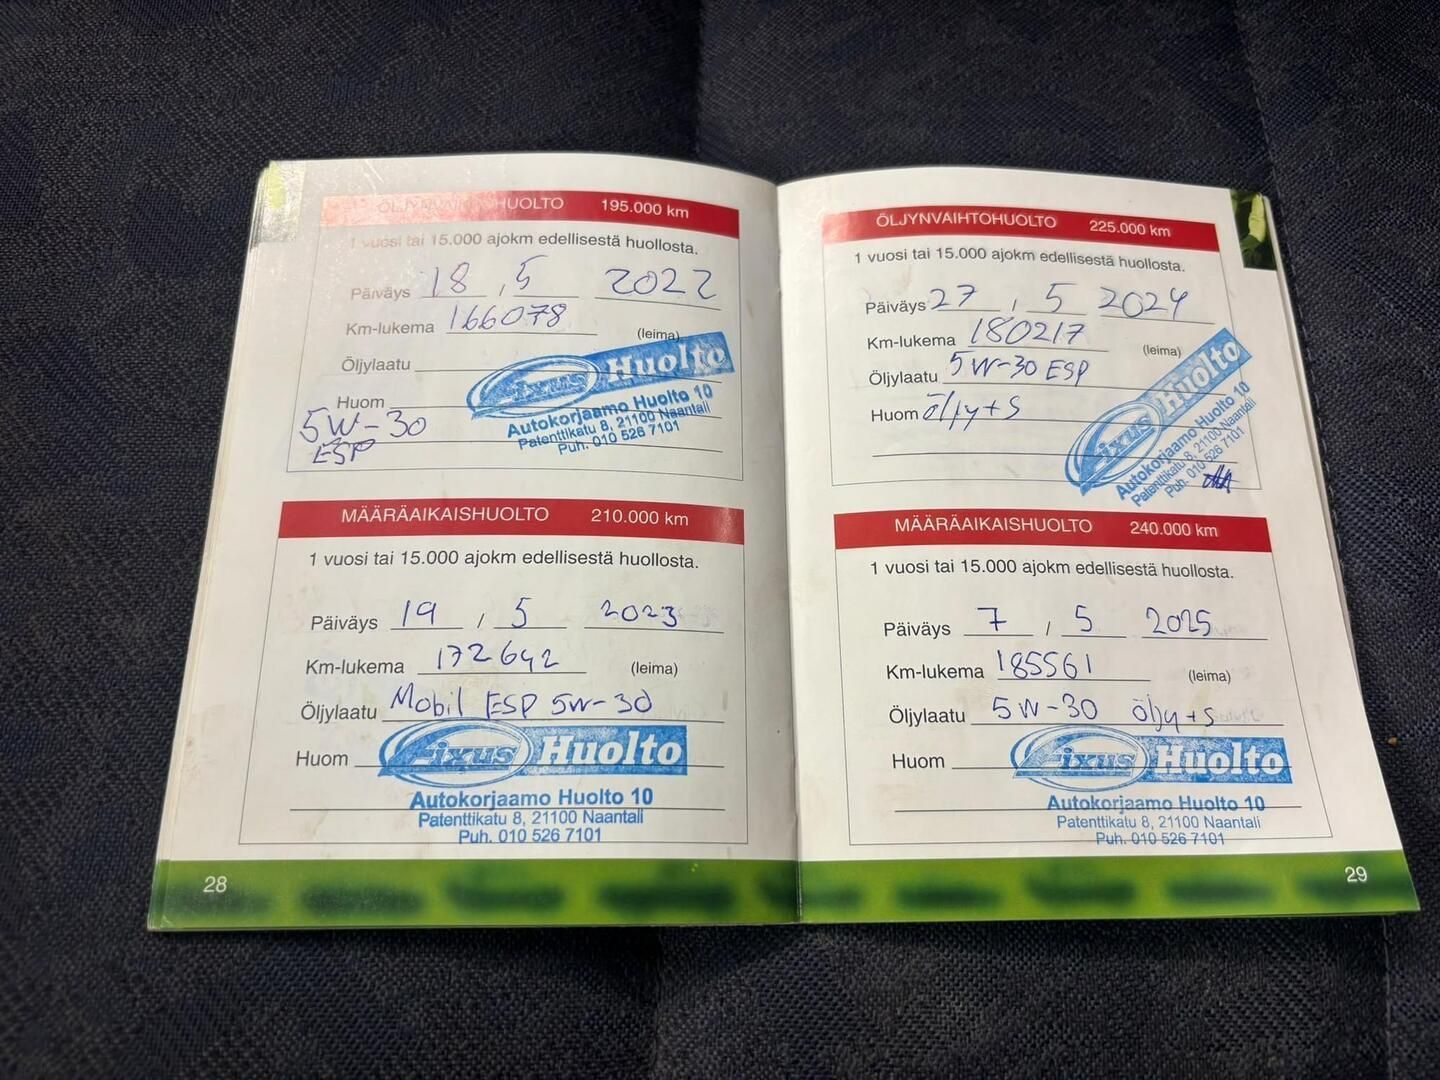 ÖLJYNVAIHTOHUOLTO 195.000 km
1 vuosi tai 15.000 ajokm edellisestä huollosta.
Päiväys 18 , 5 2022
Km-lukema 166078
(leima)
Öljylaatu
Huom
5W-30
ESP
Fixus Huolto
Autokorjaamo Huolto 10
Patenttikatu 8, 21100 Naantali
Puh. 010 526 7101
MÄÄRÄAIKAISHUOLTO 210.000 km
1 vuosi tai 15.000 ajokm edellisestä huollosta.
Päiväys 19 / 5 2023
Km-lukema 172642 (leima)
Öljylaatu Mobil ESP 5W-30
Huom
Fixus Huolto
Autokorjaamo Huolto 10
Patenttikatu 8, 21100 Naantali
Puh. 010 526 7101
28
ÖLJYNVAIHTOHUOLTO 225.000 km
1 vuosi tai 15.000 ajokm edellisestä huollosta.
Päiväys 27 , 5 2024
Km-lukema 180217 (leima)
Öljylaatu 5W-30 ESP
Huom öljy+S
Fixus Huolto
Autokorjaamo Huolto 10
Patenttikatu 8, 21100 Naantali
Puh. 010 526 7101
MÄÄRÄAIKAISHUOLTO 240.000 km
1 vuosi tai 15.000 ajokm edellisestä huollosta.
Päiväys 7 / 5 2025
Km-lukema 185561 (leima)
Öljylaatu 5W-30 öljy+S
Huom
Fixus Huolto
Autokorjaamo Huolto 10
Patenttikatu 8, 21100 Naantali
Puh. 010 526 7101
29